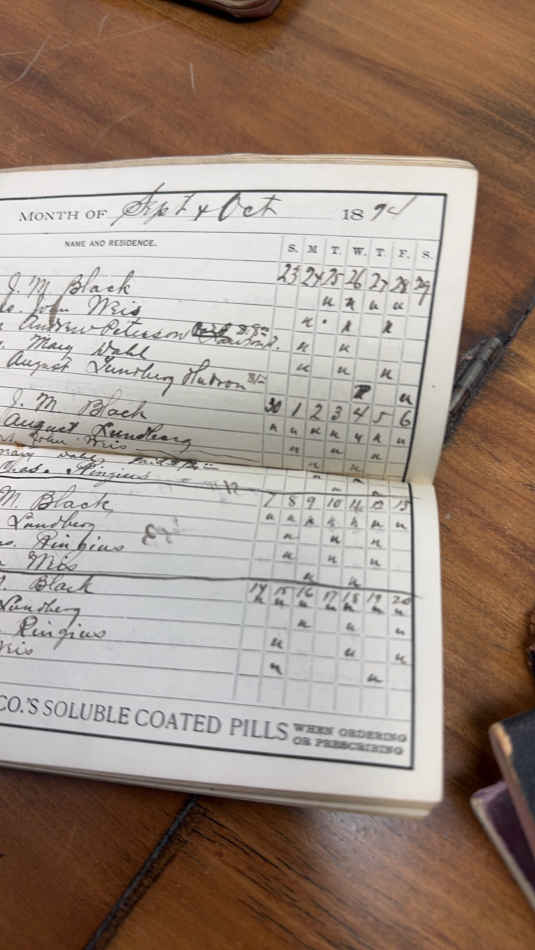 MONTH OF Sept & Oct 1894
NAME AND RESIDENCE. S. M T. W. T. F. S.
23 24 25 26 27 28 29
J. M Black
John Weis
Andrew Peterson
Mary Dahl
August Lundberg Hudson
30 1 2 3 4 5 6
J. M Black
August Lundberg
John Weis
Mary Dahl
Chas. Ringius
7 8 9 10 11 12 13
M. Black
Lundberg
Ringius
Weis
14 15 16 17 18 19 20
Black
Lundberg
Ringius
Weis
CO.'S SOLUBLE COATED PILLS WHEN ORDERING
OR PRESCRIBING